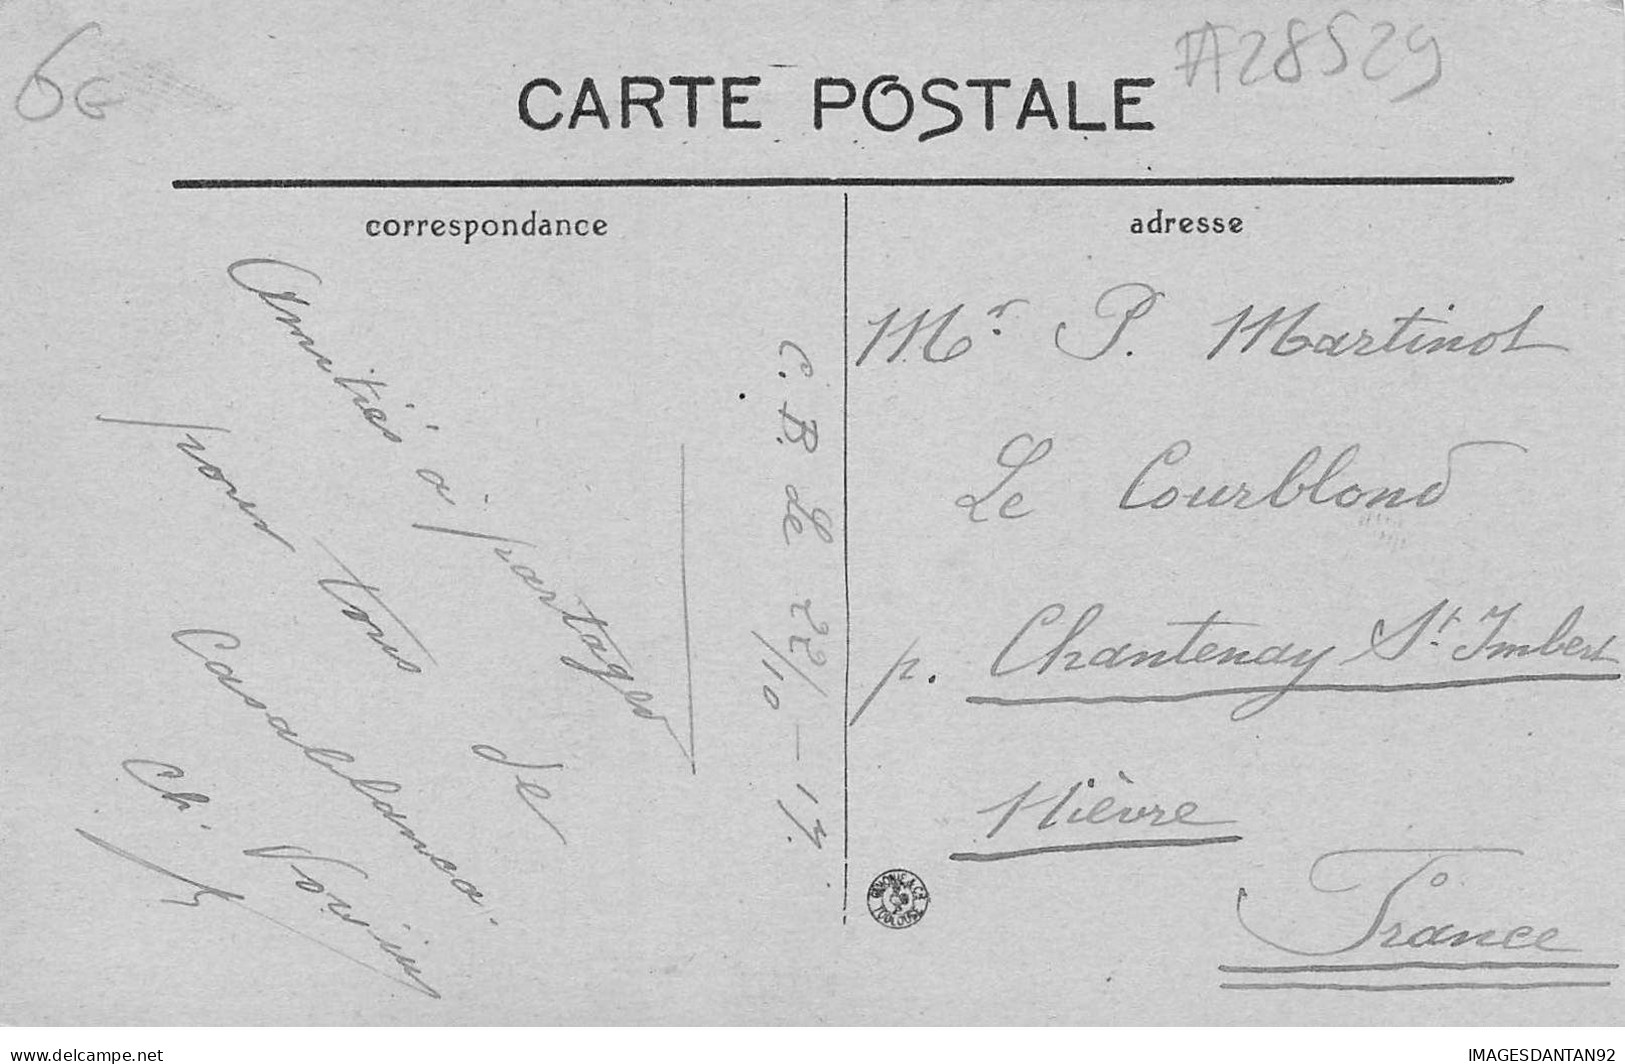 6€
#28529
CARTE POSTALE
correspondance
adresse
Amitiés à partager
pour tous de
Casablanca.
Ch. Voisin
C. B. Le 22/10 - 13.
Mr. P. Martinot
Le Courblond
p. Chantenay St. Imbert
Nièvre
France
TOULOUSE
delcampe.net
IMAGESDANTAN92